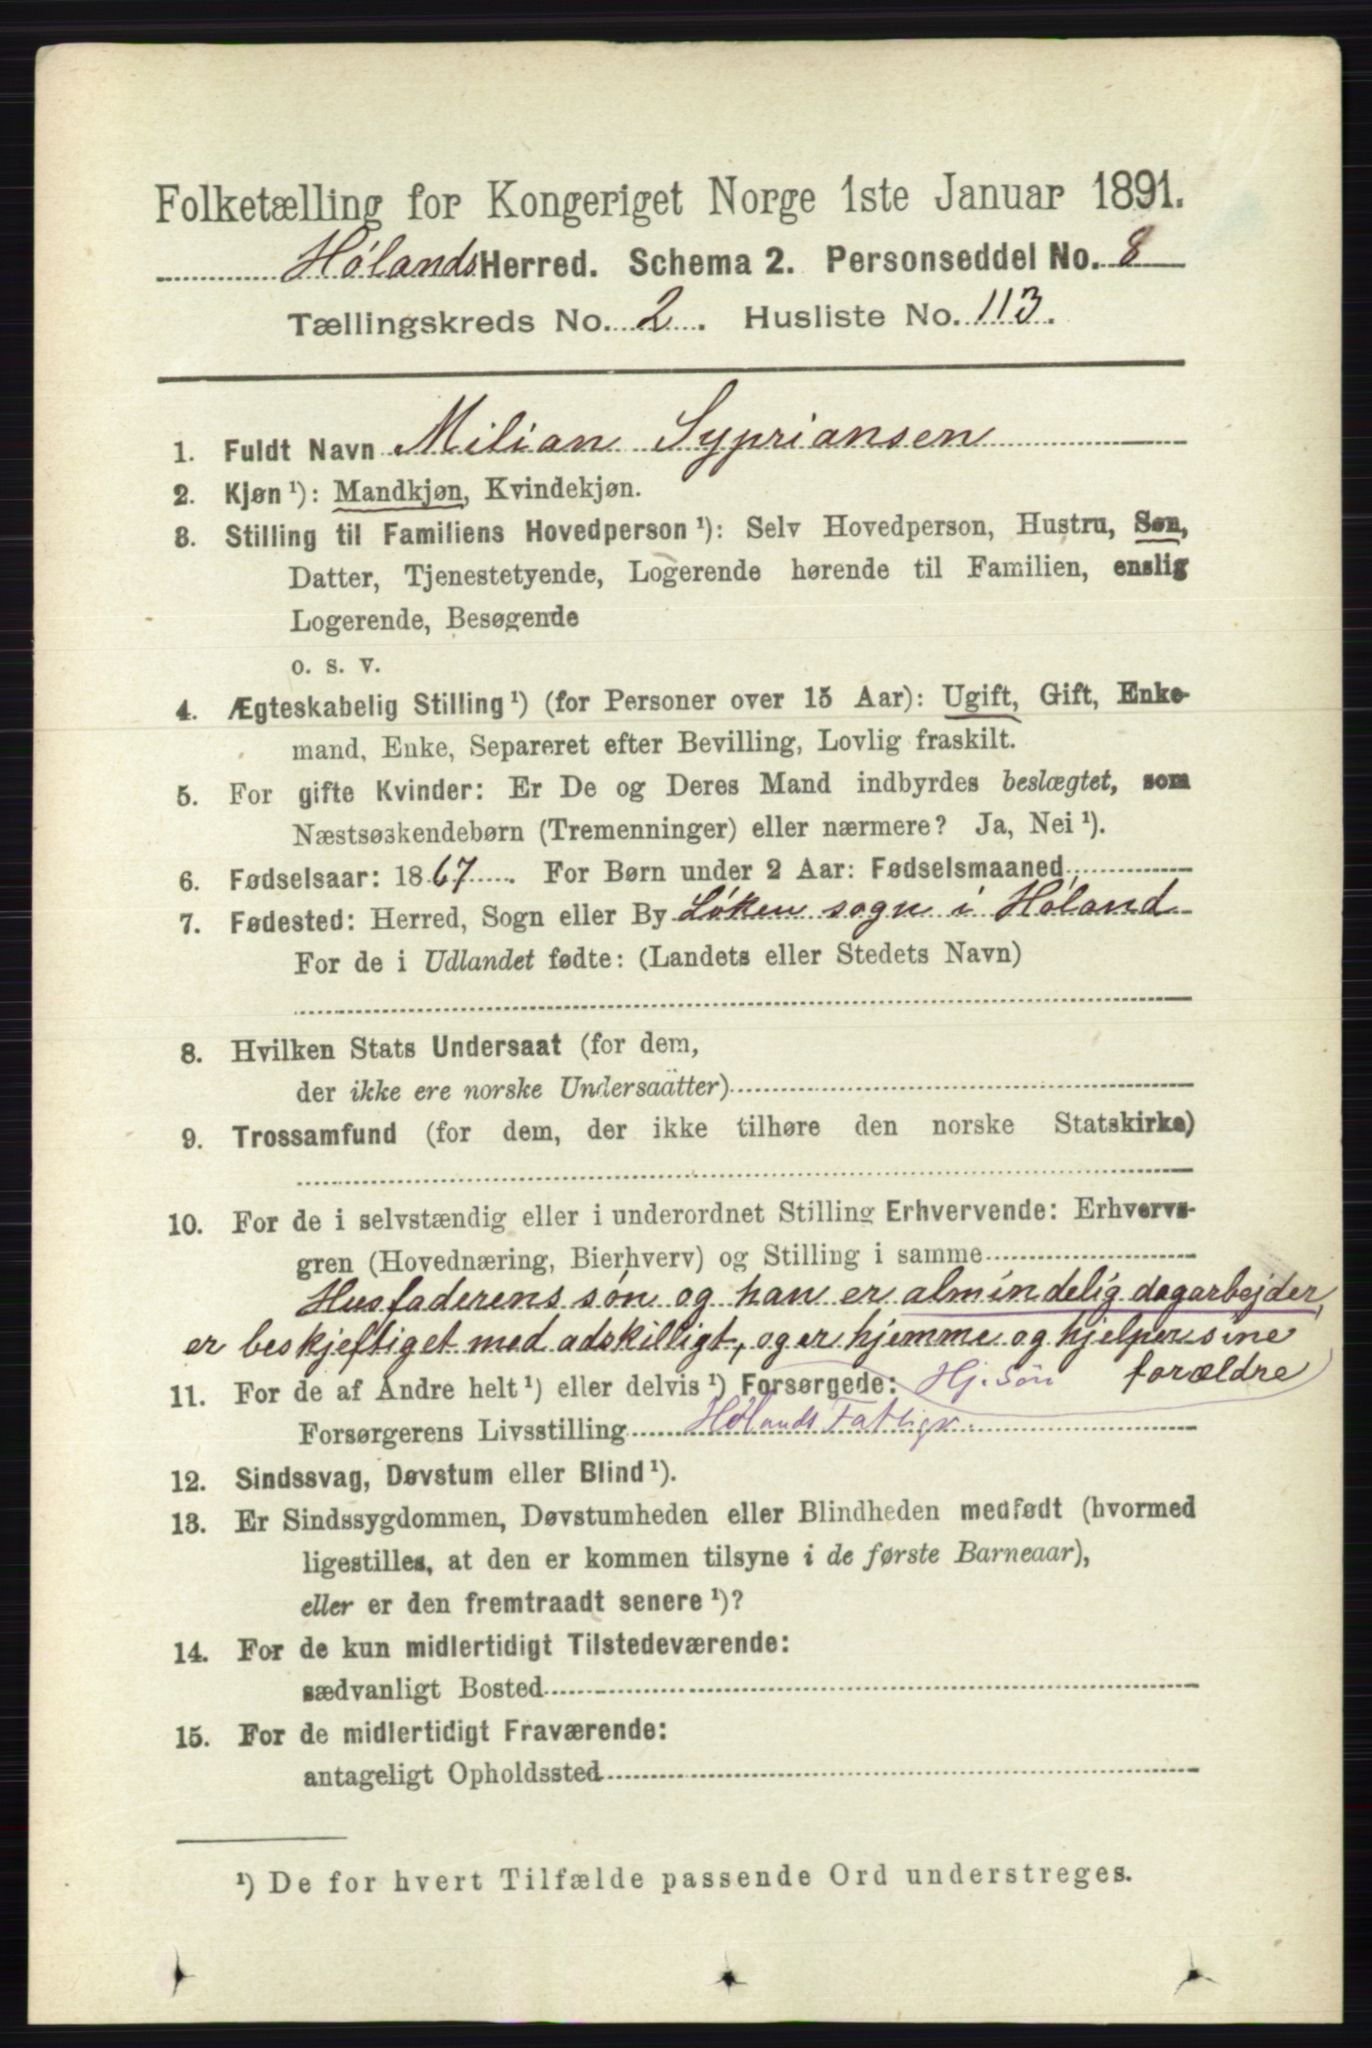 Folketælling for Kongeriget Norge 1ste Januar 1891.
Hølands Herred. Schema 2. Personseddel No. 8
Tællingskreds No. 2. Husliste No. 113.
1. Fuldt Navn Milian Sypriansen
2. Kjøn ¹): Mandkjøn, Kvindekjøn.
3. Stilling til Familiens Hovedperson ¹): Selv Hovedperson, Hustru, Søn,
Datter, Tjenestetyende, Logerende hørende til Familien, enslig
Logerende, Besøgende
o. s. v.
4. Ægteskabelig Stilling ¹) (for Personer over 15 Aar): Ugift, Gift, Enke-
mand, Enke, Separeret efter Bevilling, Lovlig fraskilt.
5. For gifte Kvinder: Er De og Deres Mand indbyrdes beslægtet, som
Næstsøskendebørn (Tremenninger) eller nærmere? Ja, Nei ¹).
6. Fødselsaar: 1867. For Børn under 2 Aar: Fødselsmaaned
7. Fødested: Herred, Sogn eller By Løken sogn i Høland
For de i Udlandet fødte: (Landets eller Stedets Navn)
8. Hvilken Stats Undersaat (for dem,
der ikke ere norske Undersaatter)
9. Trossamfund (for dem, der ikke tilhøre den norske Statskirke)
10. For de i selvstændig eller i underordnet Stilling Erhvervende: Erhvervs-
gren (Hovednæring, Bierhverv) og Stilling i samme
Husfaderens søn og han er almindelig dagarbejder,
er beskjeftiget med adskilligt, og er hjemme og hjelper sine
forældre
11. For de af Andre helt ¹) eller delvis ¹) Forsørgede: Hj. Søn
Forsørgerens Livsstilling Hølands Fatligv.
12. Sindssvag, Døvstum eller Blind ¹).
13. Er Sindssygdommen, Døvstumheden eller Blindheden medfødt (hvormed
ligestilles, at den er kommen tilsyne i de første Barneaar),
eller er den fremtraadt senere ¹)?
14. For de kun midlertidigt Tilstedeværende:
sædvanligt Bosted
15. For de midlertidigt Fraværende:
antageligt Opholdssted
¹) De for hvert Tilfælde passende Ord understreges.